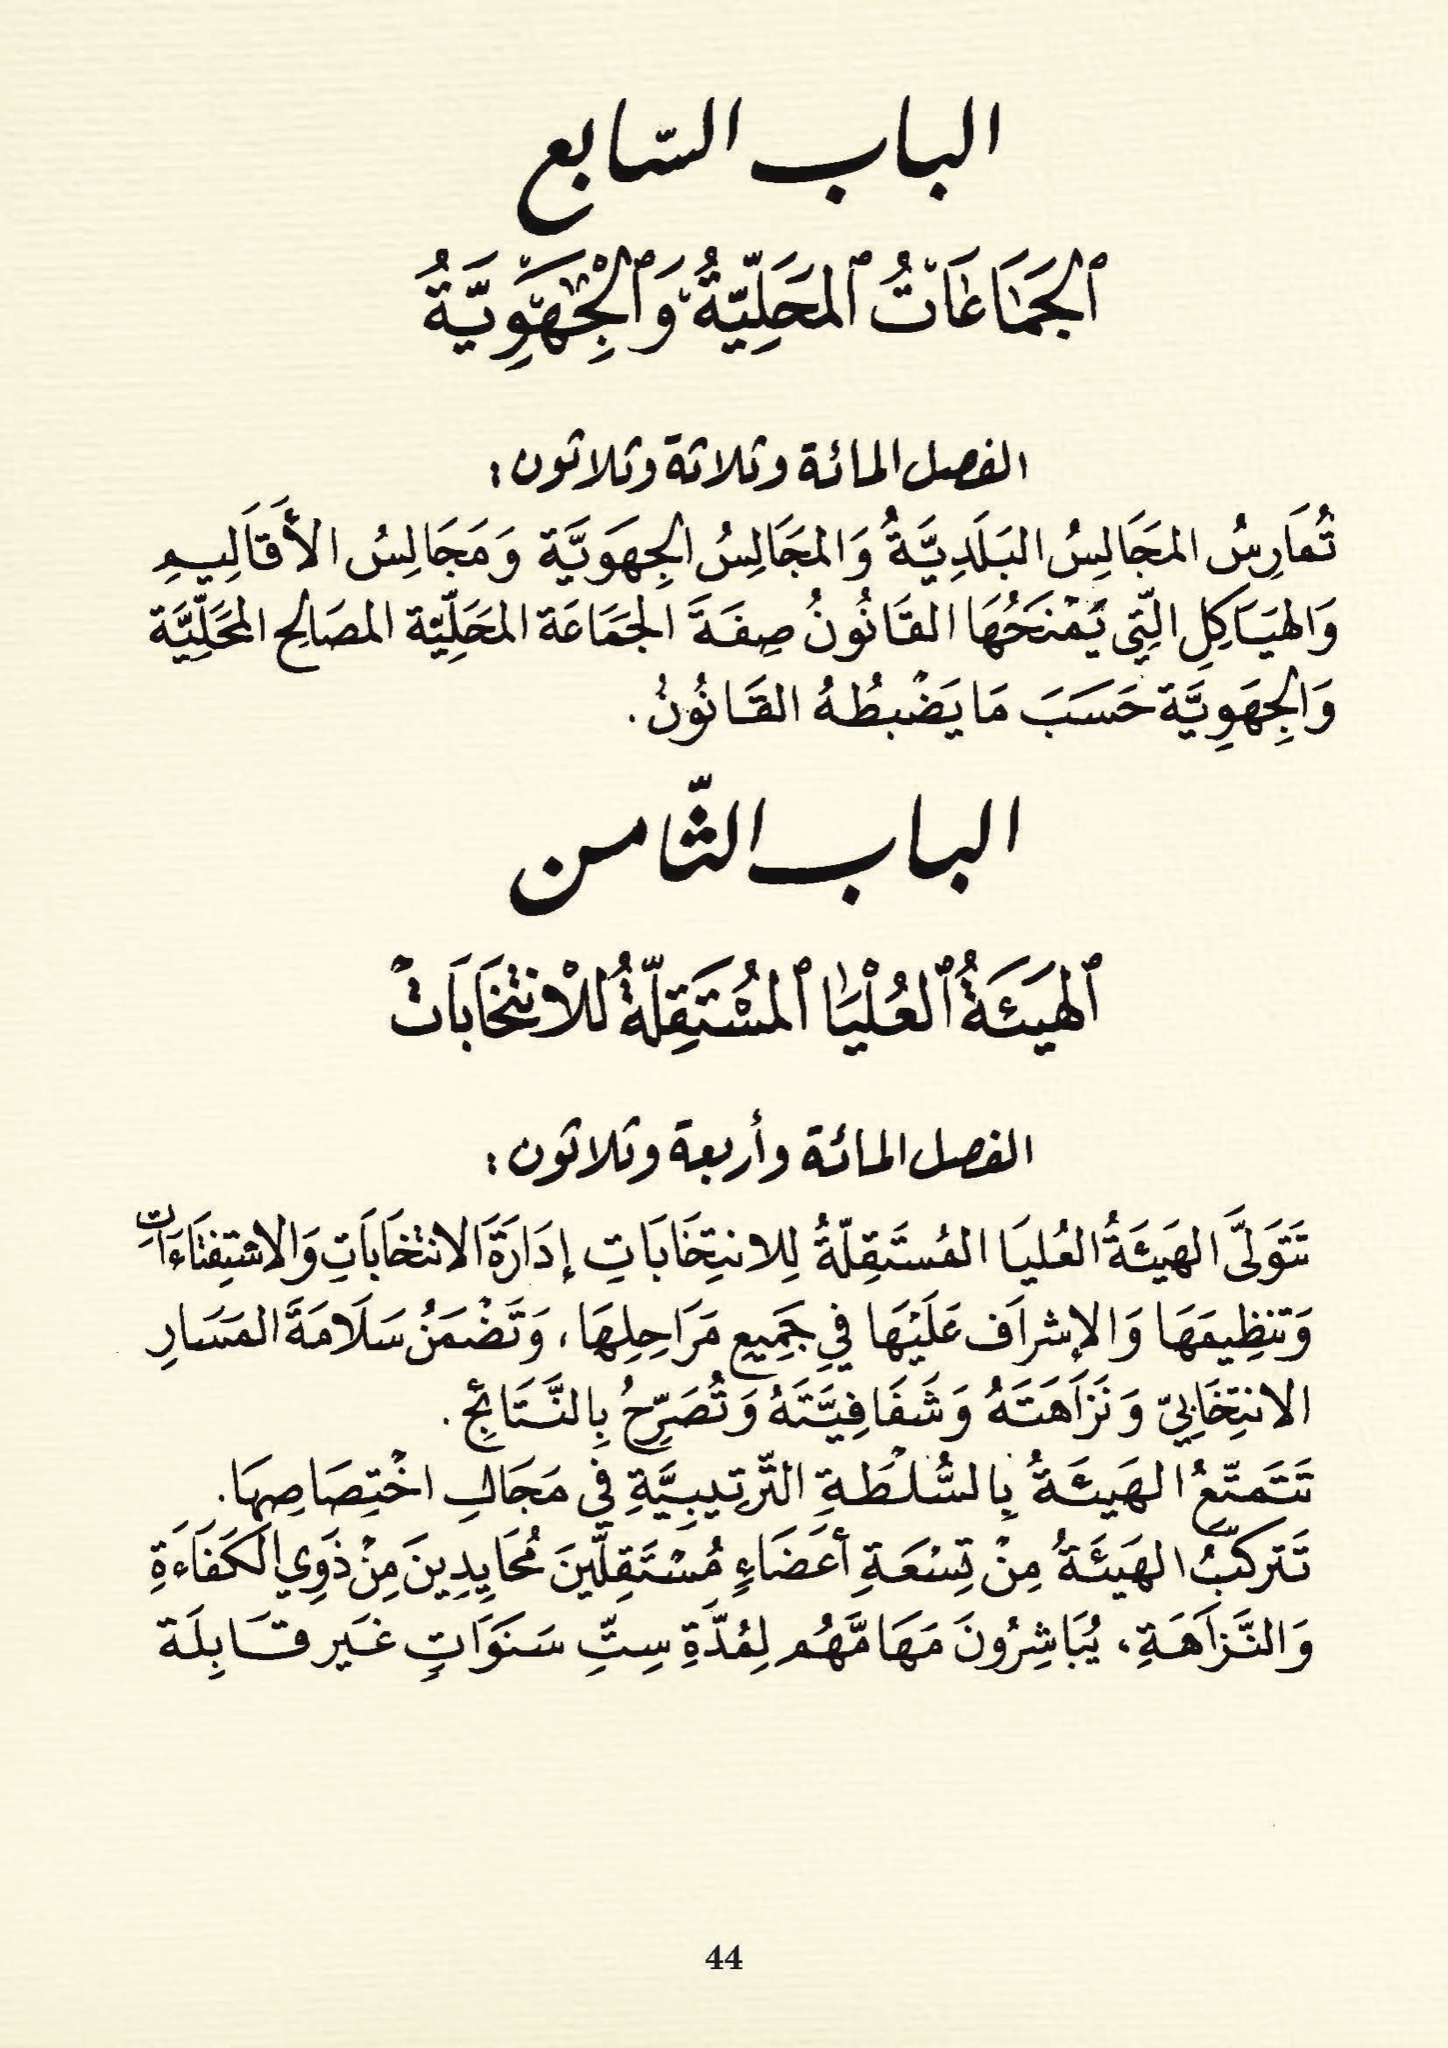 الباب السّابع
ٱلجَمَاعَاتُ ٱلمَحَلِيَّةُ وَٱلْجِهَوِيَّةُ
الفصل المائة وثلاثة وثلاثون :
تُمَارِسُ المَجَالِسُ البَلَدِيَّةُ وَالمَجَالِسُ الجِهَوَيَّة وَمَجَالِسُ الأَقَالِيمِ
وَالهَيَاكِلِ الّتِي يَمْنَحُهَا القَانُونُ صِفَةَ الجَمَاعَة المَحَلِيّة المصَالِح المَحَلِّيَّة
وَالجِهَوِيَّة حَسَبَ مَا يَضْبِطُهُ القَانُونُ .
الباب الثّامن
ٱلهَيئَةُ ٱلعُلْيَا ٱلمُسْتَقِلّةُ للْانتخَابَات
الفصل المائة وأربعة وثلاثون :
تَتَوَلَّى الهَيئَةُ العُليَا المُستَقِلّةُ لِلانتِخَابَاتِ إدَارَةَ الانتخَابَاتِ وَالاسْتِفتَاءَاتِ
وَتنظِيمَهَا وَالإشرَاف عَلَيْهَا فِي جَمِيعِ مَرَاحِلِهَا، وَتَضْمَنُ سَلَامَةَ المَسَارِ
الانتِخَابِيّ وَنَزَاهَتَهُ وَشَفَافِيَّتَهُ وَتُصَرِّحُ بِالنَّتَائِجِ .
تَتَمتّعُ الهَيئَةُ بِالسُّلْطَةِ التَّرتِيبِيَّةِ فِي مَجَالِ اخْتِصَاصِهَا.
تَتَركّبُ الهَيئَةُ مِنْ تِسْعَةِ أعضَاءٍ مُسْتَقِلّينَ مُحَايِدِينَ مِنْ ذَوِي الكَفَاءَةِ
وَالنَّزَاهَةِ، يُبَاشِرُونَ مَهَامَّهُم لِمُدَّةِ سِتِّ سَنَوَاتٍ غَير قَابِلَة
44